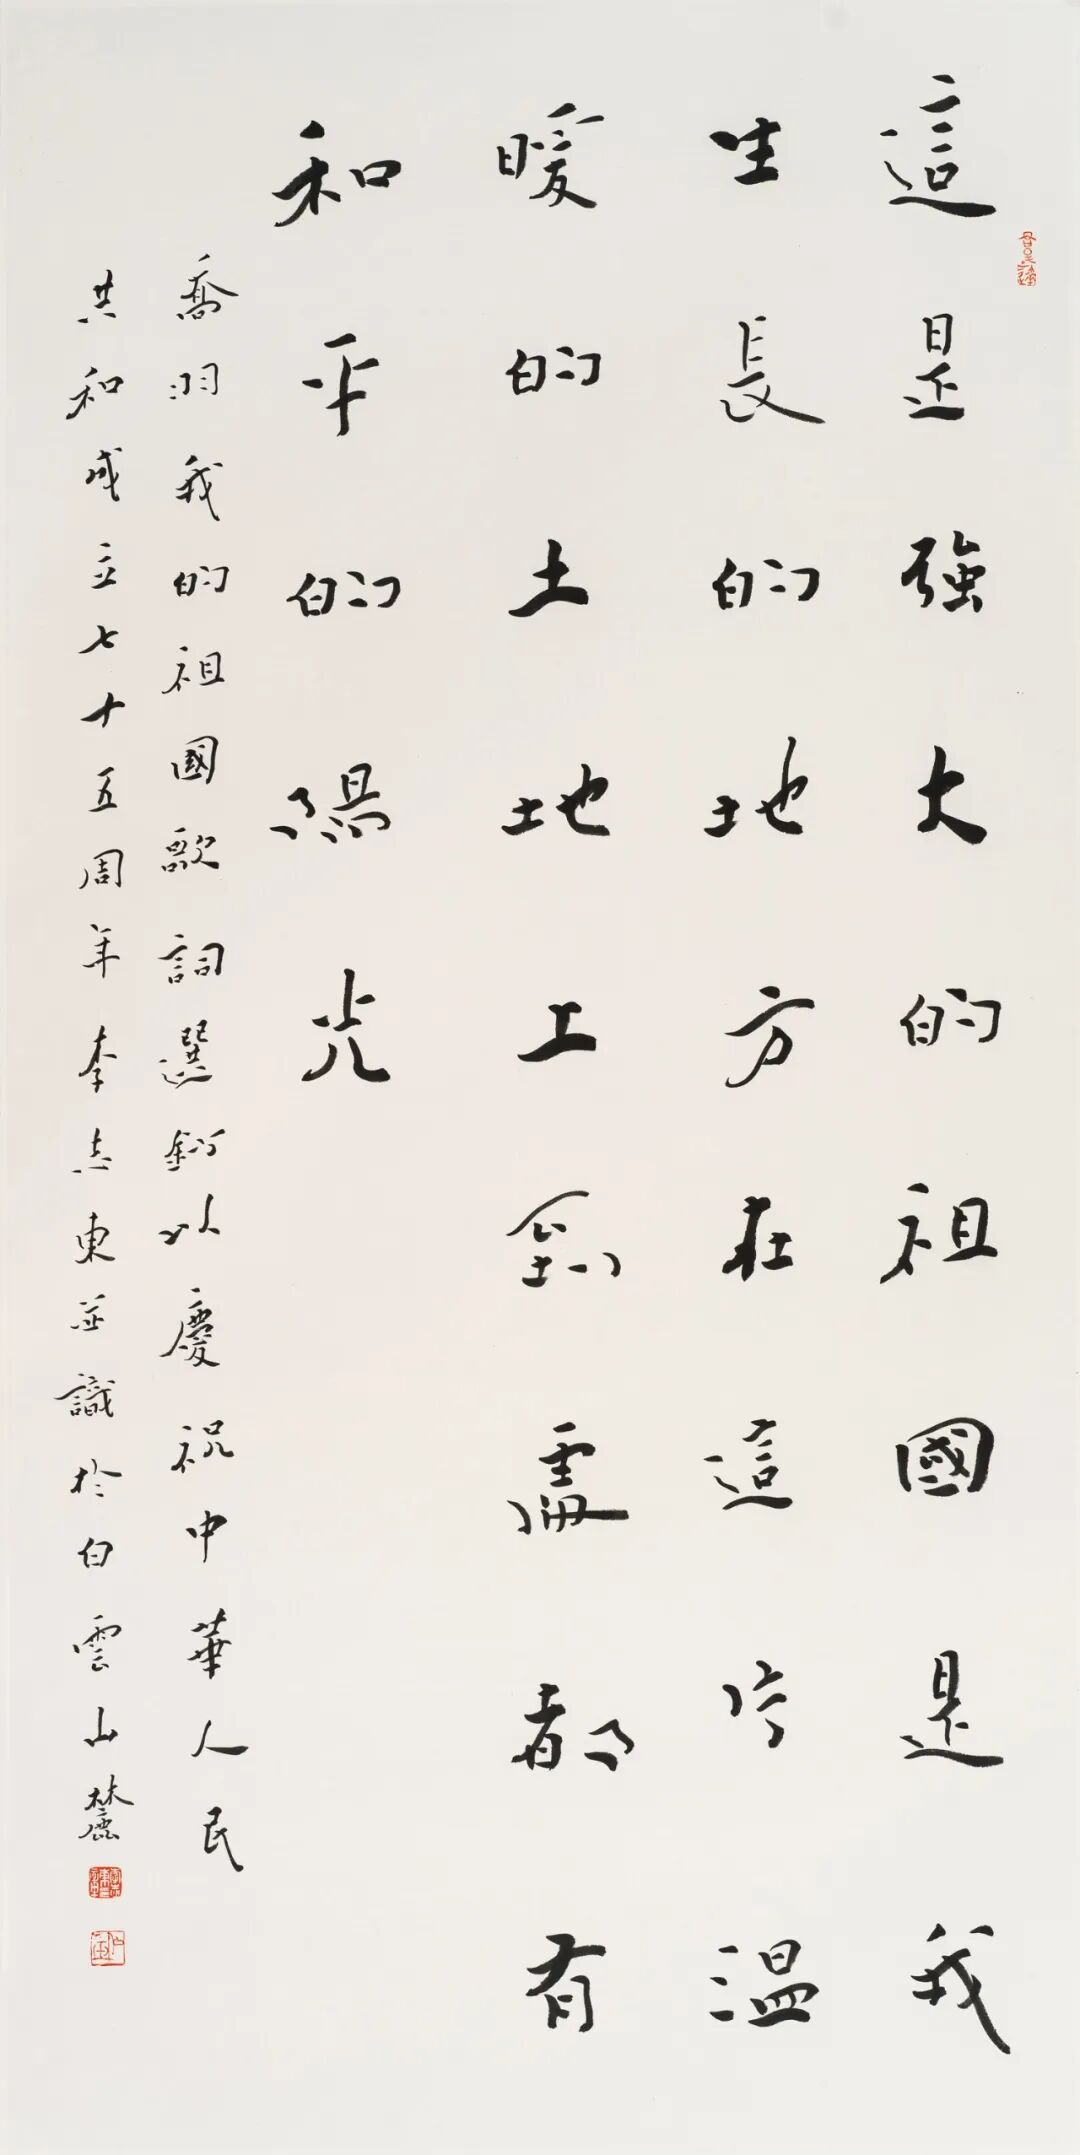 這是強大的祖國是我
生長的地方在這片温
暖的土地上到處都有
和平的陽光
喬羽我的祖國歌詞選鈔以慶祝中華人民
共和成立七十五周年李志東並識於白雲山麓